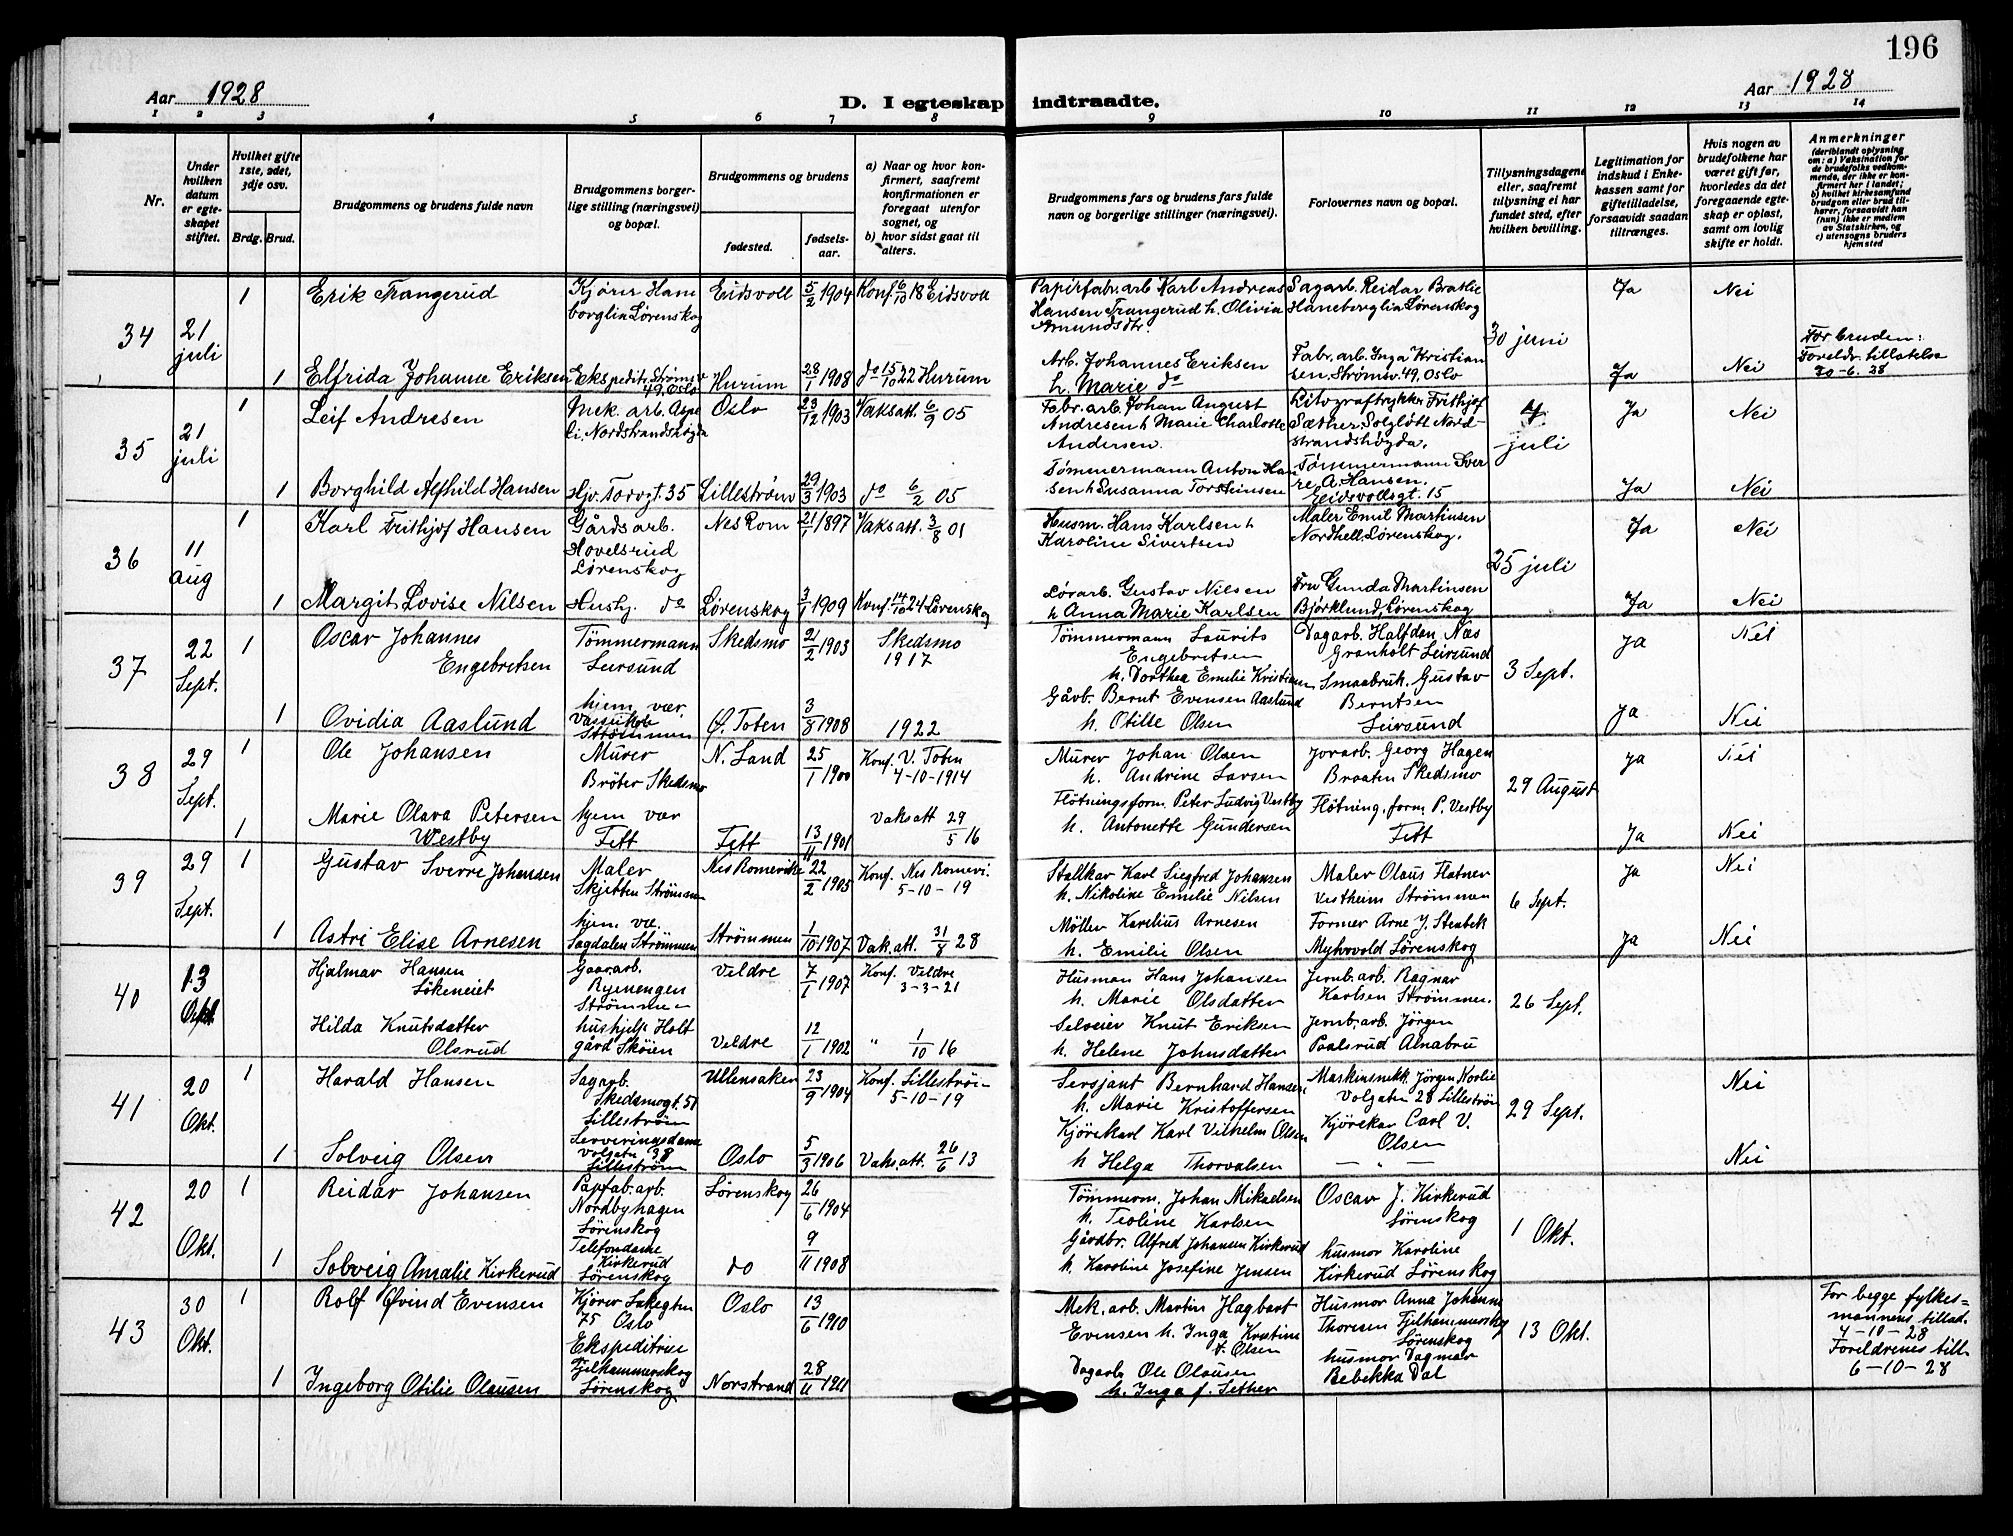 196
Aar 1928
D. I egteskap indtraadte.
Aar 1928
1 2 3 4 5 6 7 8 9 10 11 12 13 14
Nr.
Under hvilken datum er egteskapet stiftet.
Hvilket gifte 1ste, 2det, 3dje osv.
Brdg. Brud.
Brudgommens og brudens fulde navn
Brudgommens borgerlige stilling (næringsvei) og bopæl.
Brudgommens og brudens
fødested.
fødsels-aar.
a) Naar og hvor konfirmert, saafremt konfirmationen er foregaat utenfor sognet, og
b) hvor sidst gaat til alters.
Brudgommens fars og brudens fars fulde navn og borgerlige stillinger (næringsvei).
Forlovernes navn og bopæl.
Tillysningsdagene eller, saafremt tillysning ei har fundet sted, efter hvilken bevilling.
Legitimation for indskud i Enkekassen samt for giftetilladelse, forsaavidt saadan tiltrænges.
Hvis nogen av brudefolkene har været gift før, hvorledes da det foregaaende egteskap er opløst, samt om lovlig skifte er holdt.
Anmerkninger
(deriblandt oplysning om: a) Vaksination for de brudefolks vedkommende, der ikke er konfirmert her i landet; b) hvilket kirkesamfund brudgom eller brud tilhører, forsaavidt han (hun) ikke er medlem av Statskirken, og c) utensogns bruders hjemsted
34 21 juli
1 Erik Trangerud
Kjører Haneborglia Lørenskog
Eidsvoll 5/2 1904 Konf. 6/10 18 Eidsvoll
Papirfabr.arb. Karl Andreas Hansen Trangerud h. Olivia Amundsdtr.
Sagarb. Reidar Bratlie Haneborglia Lørenskog
30 juni Ja Nei
1 Elfrida Johanne Eriksen
Ekspeditr. Strømsv 49, Oslo
Hurum 28/1 1908 do 15/10 22 Hurum
Arb. Johannes Eriksen h. Marie do
Fabr. arb. Inga Kristiansen. Strømsv. 49, Oslo
Ja Nei
For bruden: Foreldr. tillatelse 30-6. 28
35 21 juli
1 Leif Andresen
Mek. arb. Aspeli, Nordstrandshøgda
Oslo 23/12 1903 Vaksatt. 6/9 05
Fabr. arb. Johan August Andresen h Marie Charlotte Andersen.
Litograftrykker Frithjof Sæther. Solgløtt Nordstrandshøgda.
4 juli Ja Nei
1 Borghild Alfhild Hansen
Hjv. Torvgt. 35
Lillestrøm 29/3 1903 do 6/2 05
Tømmermann Anton Hansen h Susanna Torstensen
Tømmermann Sverre A. Hansen. Eidsvollsgt. 15
Ja Nei
36 11 aug
1 Karl Frithjof Hansen
Gårdsarb. Hovelsrud Lørenskog
Nes Rom 21/1 1897 Vaksatt. 3/8 01
Husm. Hans Karlsen h Karoline Sivertsen
Maler Emil Martinsen Nordhell, Lørenskog.
25 juli Ja Nei
1 Margit Lovise Nilsen
Hushj. do
Lørenskog 3/1 1909 Konf. 14/10 24 Lørenskog
Lørarb. Gustav Nilsen h Anna Marie Karlsen
Fru Gunda Martinsen Bjørklund, Lørenskog
Ja Nei
37 22 Sept.
1 Oscar Johannes Engebretsen
Tömmermann Leirsund
Skedsmo 21/2 1903 Skedsmo 1917
Tömmermann Laurits Engebretsen h. Dorthea Emelie Kristiansen
Dagarb. Halfdan Næs Granholt Leirsund
3 Sept. Ja Nei
1 Ovidia Aaslund
hjem. vær. Strømmen
Ø. Toten 3/8 1908 1922
Gårb. Bernt Evensen Aaslund h. Otilde Olsen
Smaabruk. Gustav Berntsen Leirsund
Ja Nei
38 29 Sept.
1 Ole Johansen
Murer Bröter Skedsmo
N. Land 25/1 1900 Konf. V. Toten 4-10-1914
Murer Johan Olsen h. Andrine Larsen
Jorarb. Georg Hagen Braaten Skedsmo
29 August Ja Nei
1 Marie Olara Petersen Westby
hjem vær Fett
Fett 13/11 1901 Vaksatt 29/5 16
Flötningsform. Peter Ludvig Vestby h. Antonette Gundersen
Flötning. form. P. Vestby Fett
Ja Nei
39 29 Sept.
1 Gustav Sverre Johansen
Maler Skjetten Strömmen
Nes Romerike 22/2 1905 Konf. Nes Romeri. 5-10-19
Stallkar Karl Siegfred Johansen h. Nikoline Emelie Nilsen
Maler Olaus Flatner Vestheim Strömmen
6 Sept. Ja Nei
1 Astri Elise Arnesen
hjem. væ. Sagdalen Strömmen
Strömmen 1/10 1907 Vak. att. 31/8 28
Möller Karelius Arnesen h. Emilie Olsen
Former Arne J. Stenbek Myhrvold Lörenskog
Ja Nei
40 13 Okt.
Hjalmar Hansen Lökeneiet
Gaararb. Ryenengen Strömmen
Veldre 7/1 1907 Konf. Veldre 3-3-21
Husman Hans Johansen h. Marie Olsdatter
Jernb. arb. Ragnar Karlsen Strömmen.
26 Sept.
Hilda Knutsdatter Olsrud
hushjelp Holt gård Skøien
Veldre 12/1 1902 " 1/10 16
Selveier Knut Eriksen h. Helene Johnsdatter
Jernb. arb. Jörgen Paalsrud Alnabru
41 20 Okt.
1 Harald Hansen
Sagarb. Skedsmogt. 51 Lilleström
Ullensaker 23/9 1904 Konf. Lilleströ- 5-10-19
Sersjant Bernhard Hansen h. Marie Kristoffersen
Maskinsnekk. Jörgen Horlie Volgaten 28 Lilleström
29 Sept. Nei
1 Solveig Olsen
Serveringsdame Volgaten 38 Lilleström
Oslo 5/3 1906 Vaksatt. 26/6 13
Kjörekarl Karl Vilhelm Olsen h Helga Thorvalsen
Kjörekar Carl V. Olsen
— " —
Nei
42 20 Okt.
1 Reidar Johansen
Papfab. arb. Nordbyhagen Lörenskog
Lörenskog 26/6 1904
Tömmerm. Johan Mikaelsen h. Teoline Karlsen
Oscar J. Kirkerud Lörenskog
1 Okt.
1 Solveig Amalie Kirkerud
Telefondame Kirkerud Lörenskog
do 9/11 1908
Gårdbr. Alfred Johansen Kirkerud h. Karoline Josefine Jensen
husmor Karoline Kirkerud Lörenskog
43 30 Okt.
1 Rolf Øivind Evensen
Kjörer Lakegten 75 Oslo
Oslo 13/6 1910
Mek. arb. Martin Hagbart Evensen h. Inga Kristine f. Olsen
Husmor Anna Johanne Thoresen Fjelhammerskog Lörenskog
13 Okt.
For begge fylkesmannens tillad. 4-10-28 Foreldrenes till. 6-10-28
1 Ingeborg Otilie Olausen
Ekspeditrise Fjelhammerskog Lörenskog
Norstrand 28/11 1911
Dagarb. Ole Olausen h. Inga f. Sether
husmor Dagmar Bebekka Dal